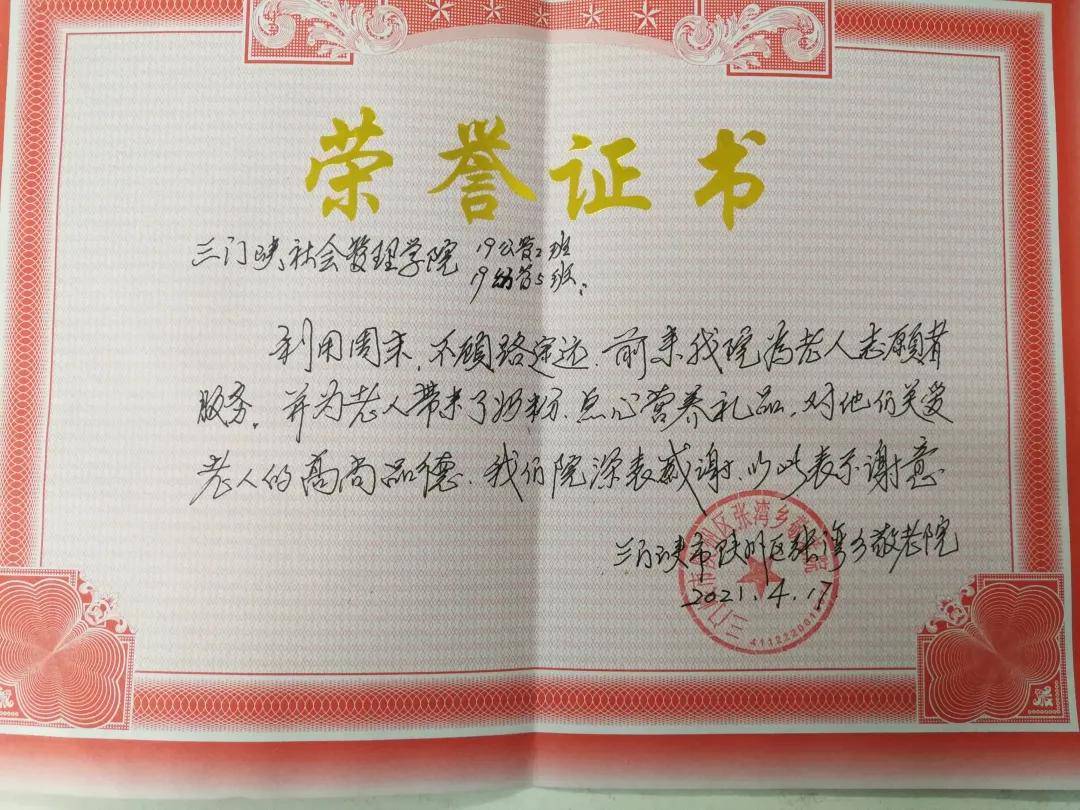 荣誉证书
三门峡社会管理学院 19公管2班
19幼管5班：
利用周末，不顾路途远，前来我院为老人志愿者
服务。并为老人带来了奶粉、点心营养礼品，对他们关爱
老人的高尚品德、我们院深表感谢，以此表示谢意
三门峡市陕州区张湾乡敬老院
2021.4.17